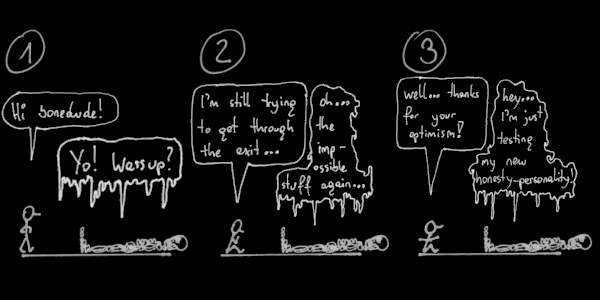 1
Hi bonedude!
Yo! Wassup?
2
I'm still trying
to get through
the exit...
oh...
the
imp-
ossible
stuff again...
3
well... thanks
for your
optimism!
hey...
I'm just
testing
my new
honesty-personality!